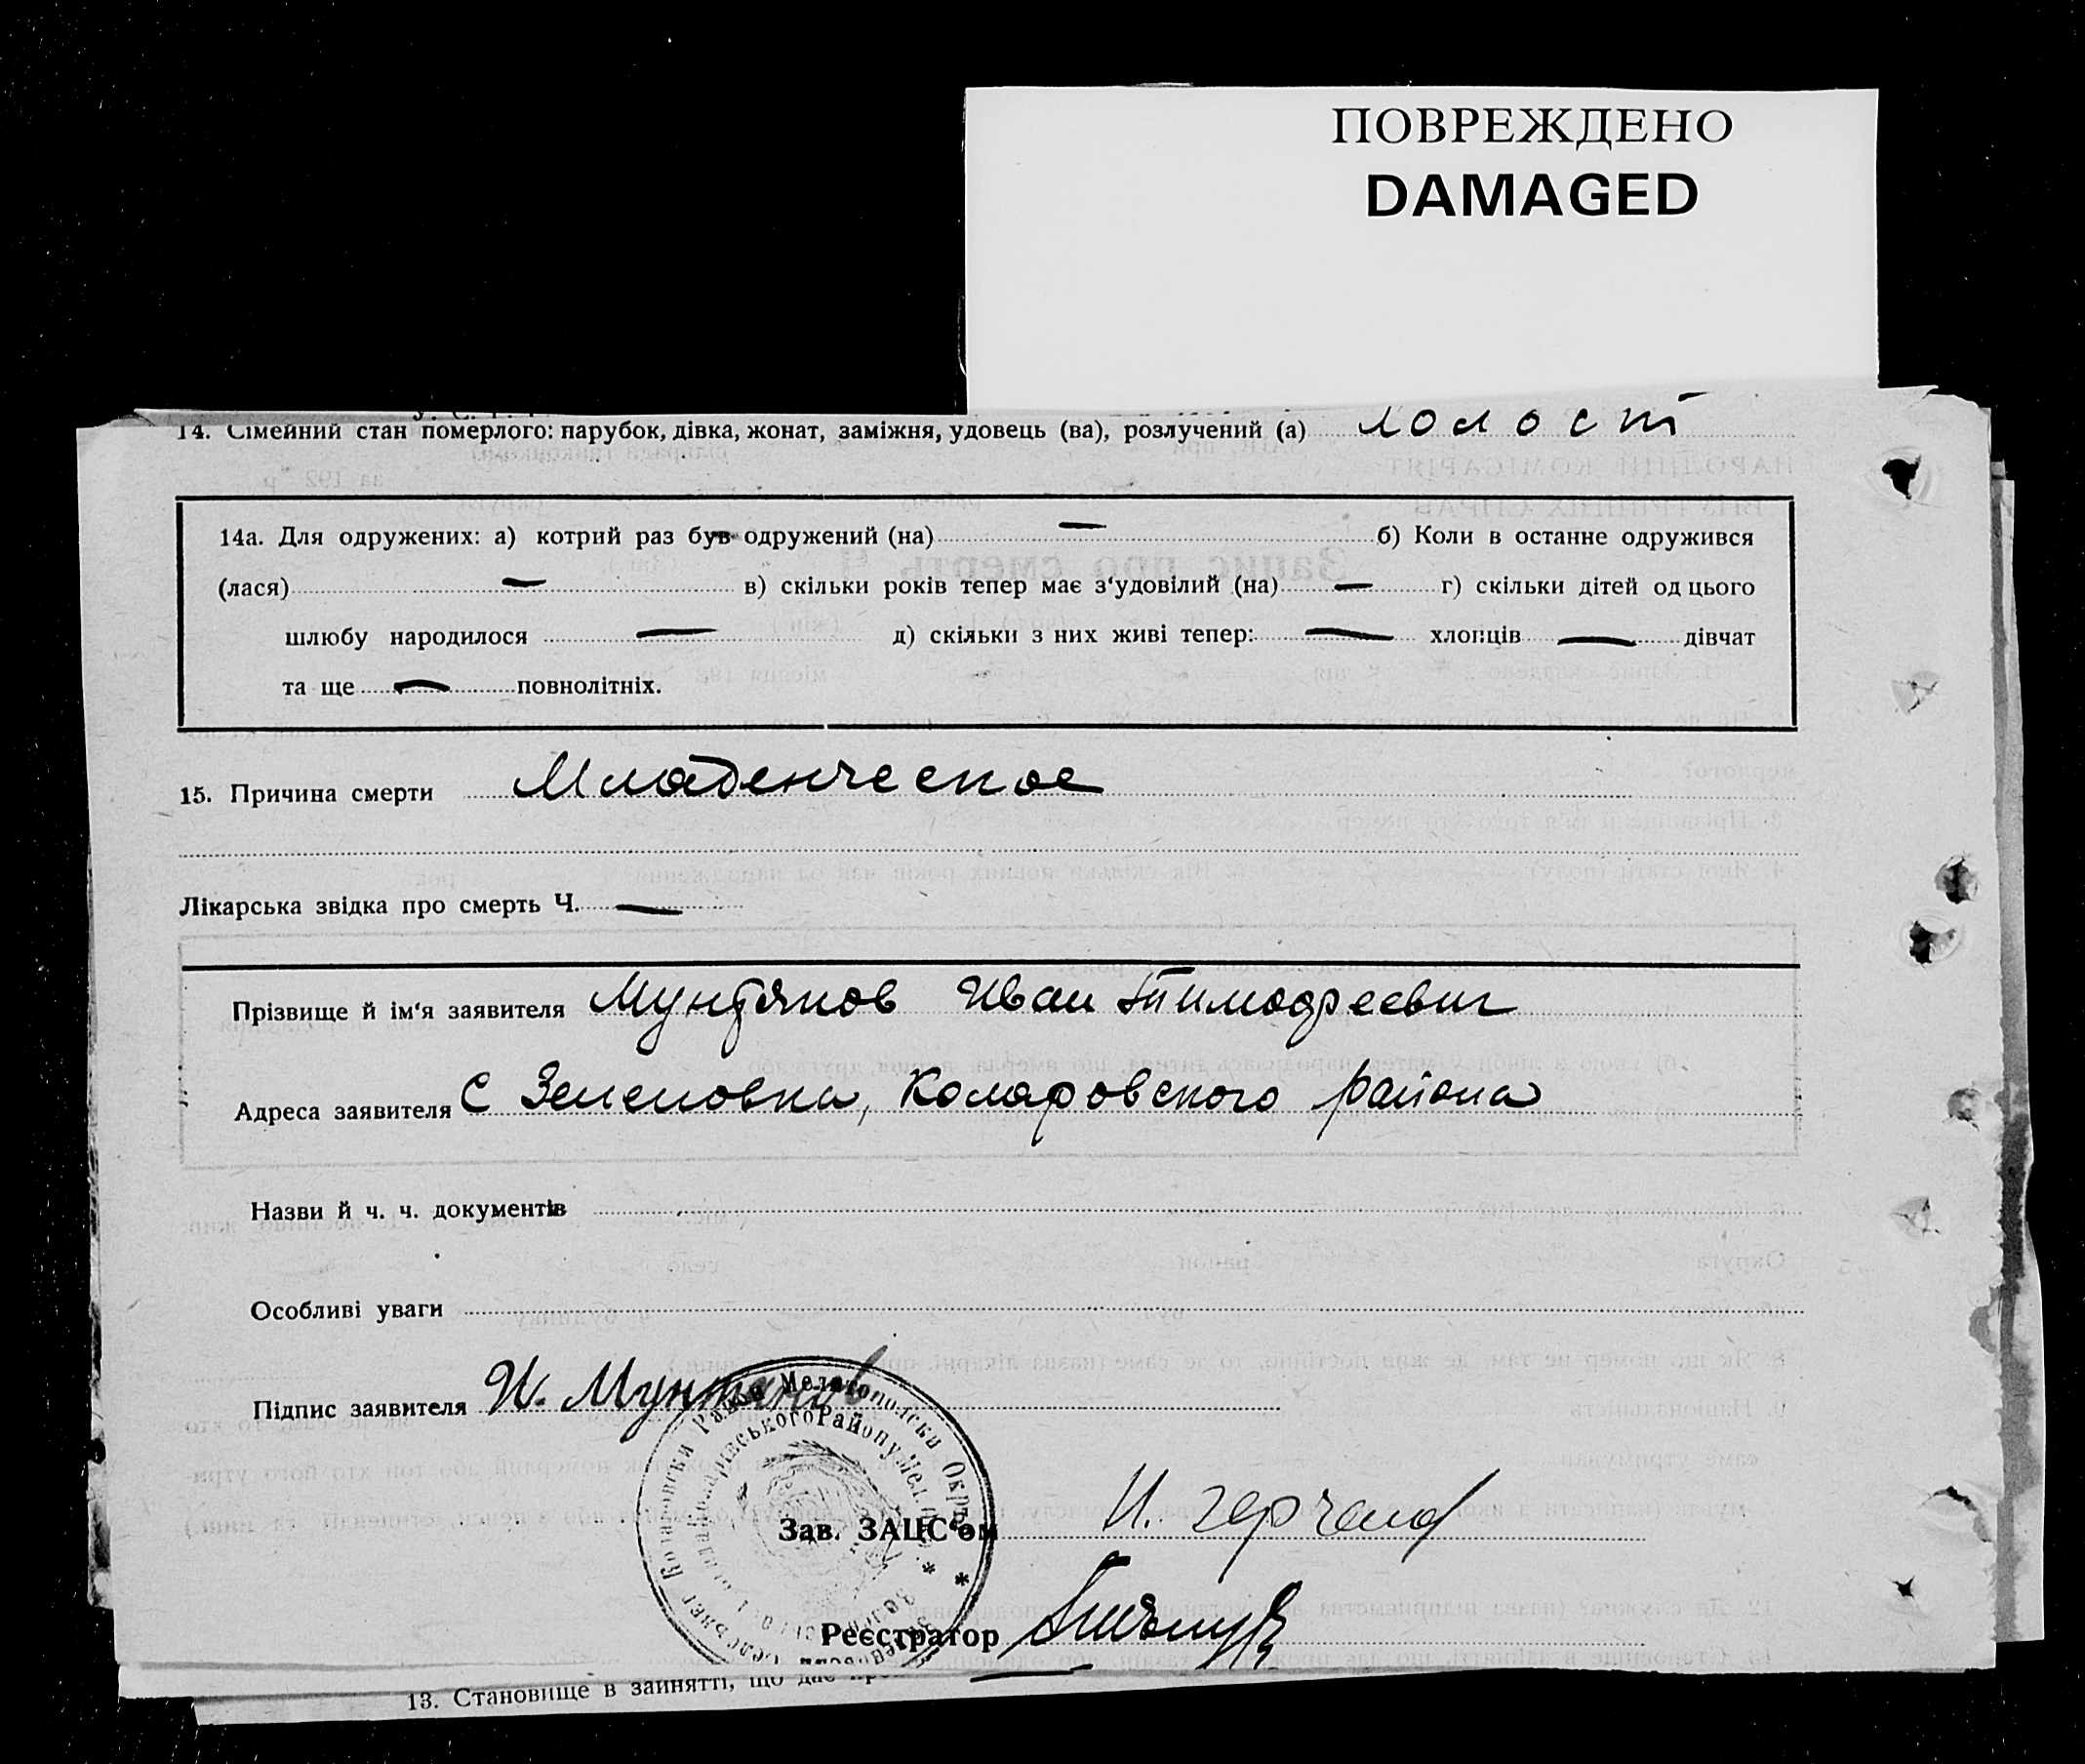 ПОВРЕЖДЕНО
DAMAGED
14. Сімейний стан померлого: парубок, дівка, жонат, заміжня, удовець (ва), розлучений (а) холост
14а. Для одружених: а) котрий раз був одружений (на) — б) Коли в останне одружився
(лася) — в) скільки років тепер має з‘удовілий (на) — г) скільки дітей од цього
шлюбу народилося — д) скільки з них живі тепер: — хлопців — дівчат
та ще — повнолітніх.
15. Причина смерти Младенческое
Лікарська звідка про смерть Ч. —
Прізвище й ім‘я заявителя Мунтянов Иван Тимофеевич
Адреса заявителя С Зеленовка, Коларовского района
Назви й ч. ч. документів
Особливі уваги
Підпис заявителя И. Мунтянов
Зав. ЗАЦС‘ом
Реєстратор
13. Становище в занятті, що дає